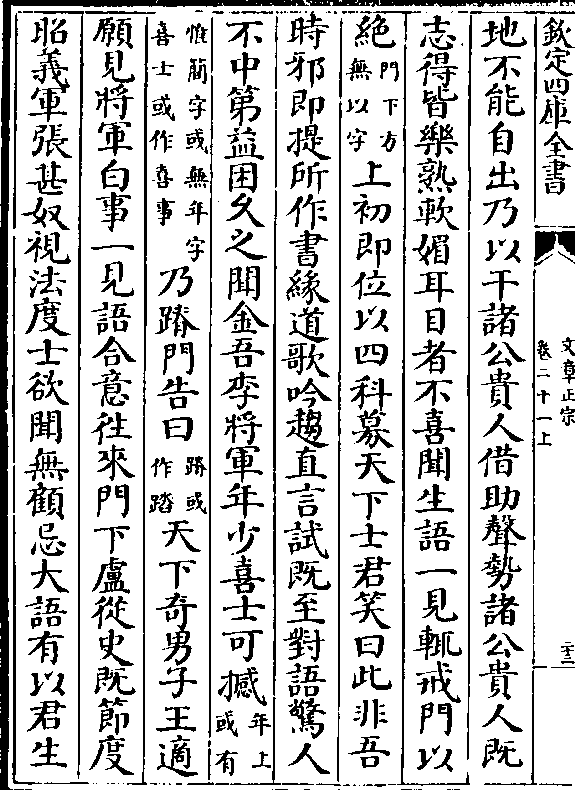 欽定四庫全書
文章正宗
卷二十一上
地不能自出乃以干諸公貴人借助聲勢諸公貴人既
志得皆樂熟軟媚耳目者不喜聞生語一見輒戒門以
絶門下方無以字上初即位以四科募天下士君笑曰此非吾
時邪即提所作書緣道歌吟趨直言試既至對語驚人
不中第益困久之聞金吾李將軍年少喜士可撼年上或有
惟簡字或無年字喜士或作喜事乃蹐門告曰蹐或作踏天下奇男子王適
願見將軍白事一見語合意徃來門下盧從史既節度
昭義軍張甚奴視法度士欲聞無顧忌大語有以君生